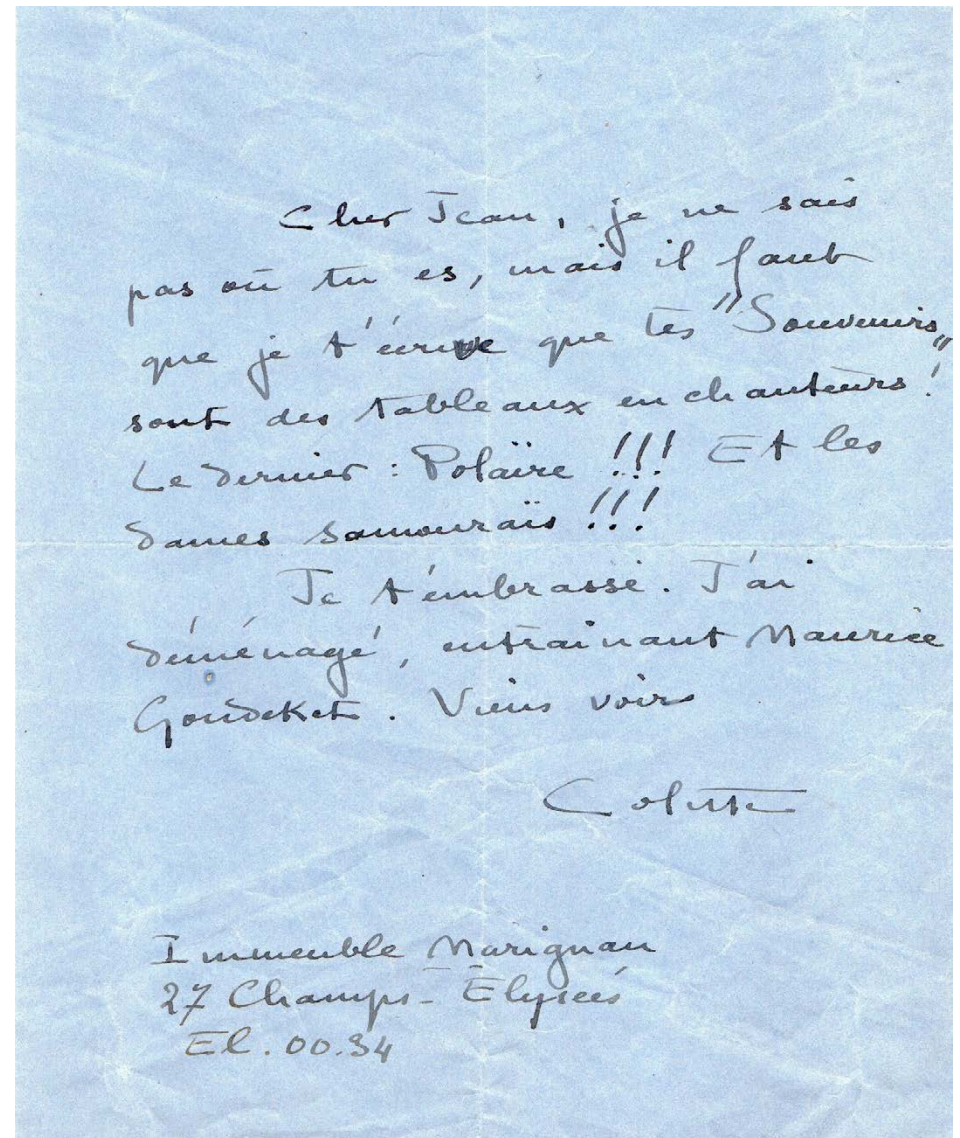 Cher Jean, je ne sais
pas où tu es, mais il faut
que je t'écrive que tes "Souvenirs"
sont des tableaux enchanteurs!
Le dernier : Polaïre !!! Et les
dames samouraïs !!!
Je t'embrasse. J'ai
déménagé, entrainant Maurice
Goudeket. Viens voir
Colette
Immeuble Marignan
27 Champs-Elysées
El. 00.34